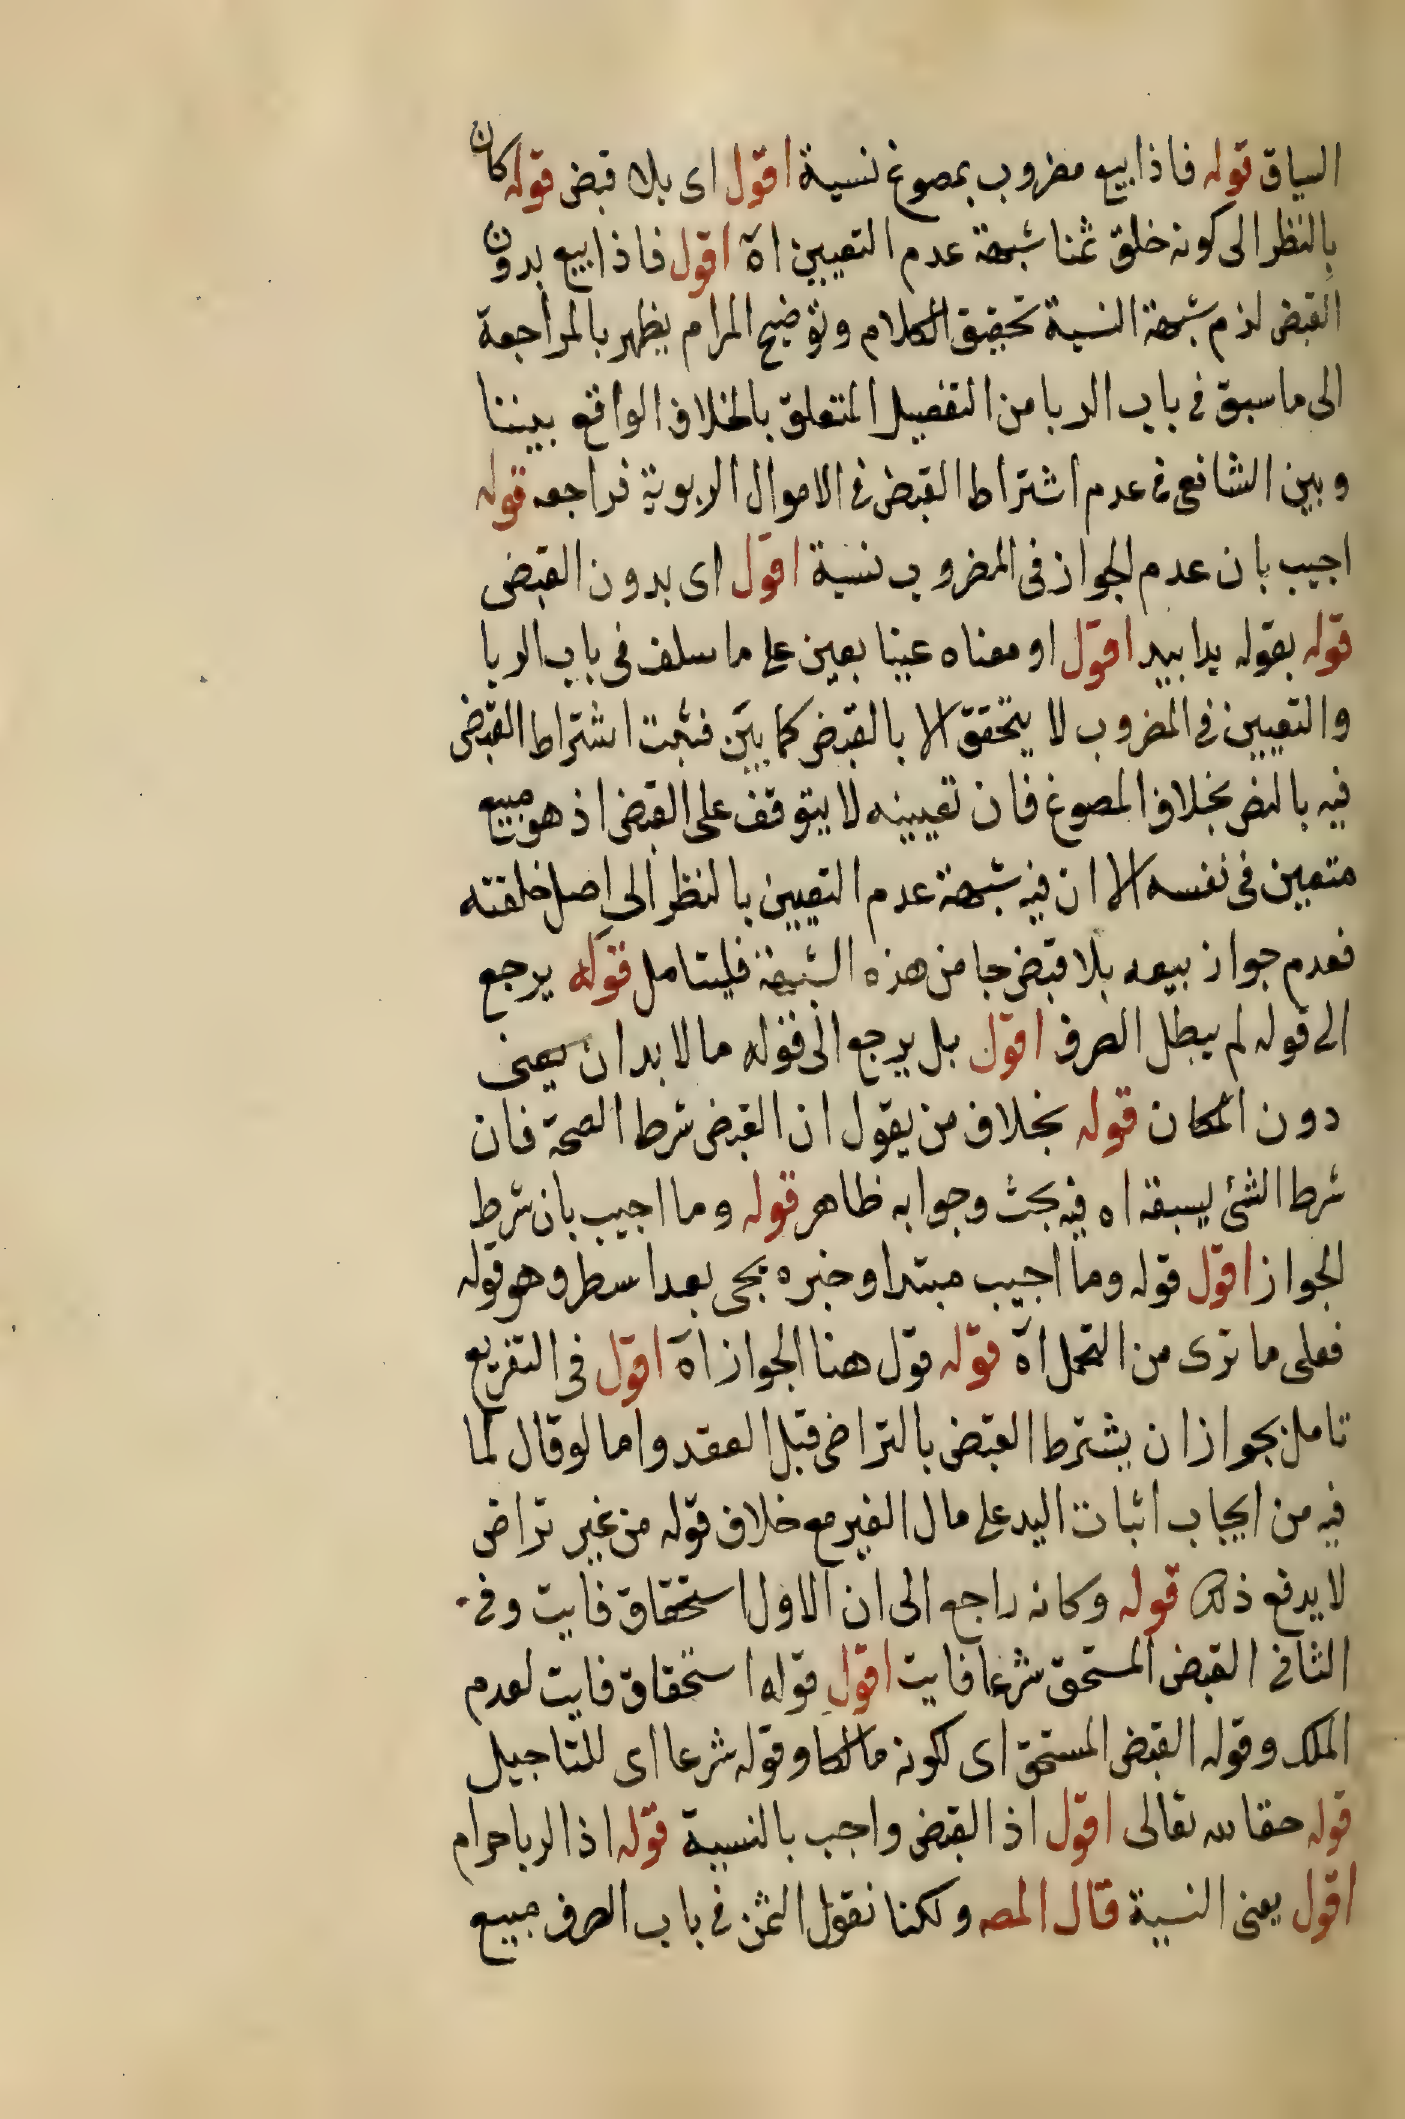 السياق قوله فاذا بيع مضروب بمصوغ نسية اقول اى بلا قبض قوله كان
بالنظر الى كونه خلق ثمنا شبهة عدم التعيين اه اقول فاذا بيع بدون
القبض لزم شبهة النسية تحقيق الكلام وتوضيح المرام يظهر بالمراجعة
الى ما سبق فى باب الربا من التفصيل المتعلق بالخلاف الواقع بيننا
وبين الشافعى فى عدم اشتراط القبض فى الاموال الربوية فراجعه قوله
اجيب بان عدم الجواز فى المضروب نسية اقول اى بدون القبض
قوله بقوله يدا بيد اقول او معناه عينا بعين على ما سلف فى باب الربا
والتعيين فى المضروب لا يتحقق الا بالقبض كما بين فثبت اشتراط القبض
فيه بالنص بخلاف المصوغ فان تعيينه لا يتوقف على القبض اذ هو مبيع
متعين فى نفسه الا ان فيه شبهة عدم التعيين بالنظر الى اصل خلقته
فعدم جواز بيعه بلا قبض جا من هذه الشبهة فليتامل قوله يرجع
الى قوله لم يبطل الصرف اقول بل يرجع الى قوله ما لا بد ان يعنى
دون المكان قوله بخلاف من يقول ان القبض شرط الصحة فان
شرط الشئ يسبقه اه فيه بحث وجوابه ظاهر قوله وما اجيب بان شرط
الجواز اقول قوله وما اجيب مبتدا وخبره يجى بعد اسطر وهو قوله
فعلى ما ترى من التمحل اه قوله قول هنا الجواز اه اقول فى التفريع
تامل بجواز ان يشترط القبض بالتراضى قبل العقد واما لو قال لما
فيه من ايجاب اثبات اليد على مال الغير مع خلاف قوله من غير تراض
لا يدفع ذلك قوله وكانه راجع الى ان الاول استحقاق فايت وفى
الثانى القبض المستحق شرعا فايت اقول قوله استحقاق فايت لعدم
الملك وقوله القبض المستحق اى لكونه مالكا وقوله شرعا اى للتاجيل
قوله حقا لله تعالى اقول اذ القبض واجب بالنسية قوله اذ الربا حرام
اقول يعنى النسية قال المصه ولكنا نقول الثمن فى باب الصرف مبيع